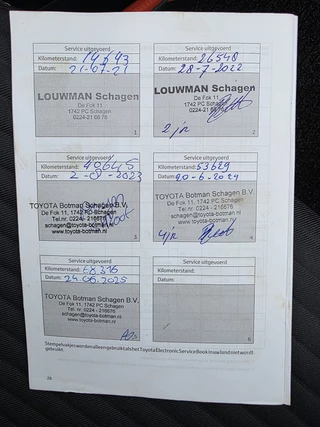 Service uitgevoerd
Kilometerstand: 14643
Datum: 21-07-21
LOUWMAN Schagen
De Fok 11
1742 PC Schagen
0224-21 66 76
1
Service uitgevoerd
Kilometerstand: 26548
Datum: 28-7-2022
LOUWMAN Schagen
De Fok 11
1742 PC Schagen
0224-21 66 76
2 jr
2
Service uitgevoerd
Kilometerstand: 40645
Datum: 2-01-2023
TOYOTA Botman Schagen B.V.
De Fok 11, 1742 PC Schagen
Tel.nr. 0224 - 216676
schagen@toyota-botman.nl
www.toyota-botman.nl
3
Service uitgevoerd
Kilometerstand: 53629
Datum: 20-6-2024
TOYOTA Botman Schagen B.V.
De Fok 11, 1742 PC Schagen
Tel.nr. 0224 - 216676
schagen@toyota-botman.nl
www.toyota-botman.nl
4 jr
4
Service uitgevoerd
Kilometerstand: 68316
Datum: 24-06-2025
TOYOTA Botman Schagen B.V.
De Fok 11, 1742 PC Schagen
Tel. nr. 0224 - 216676
schagen@toyota-botman.nl
www.toyota-botman.nl
Service uitgevoerd
Kilometerstand:
Datum:
6
Stempelvakjes worden alleen gebruikt als het Toyota Electronic Service Book in uw land niet wordt
gebruikt.
26